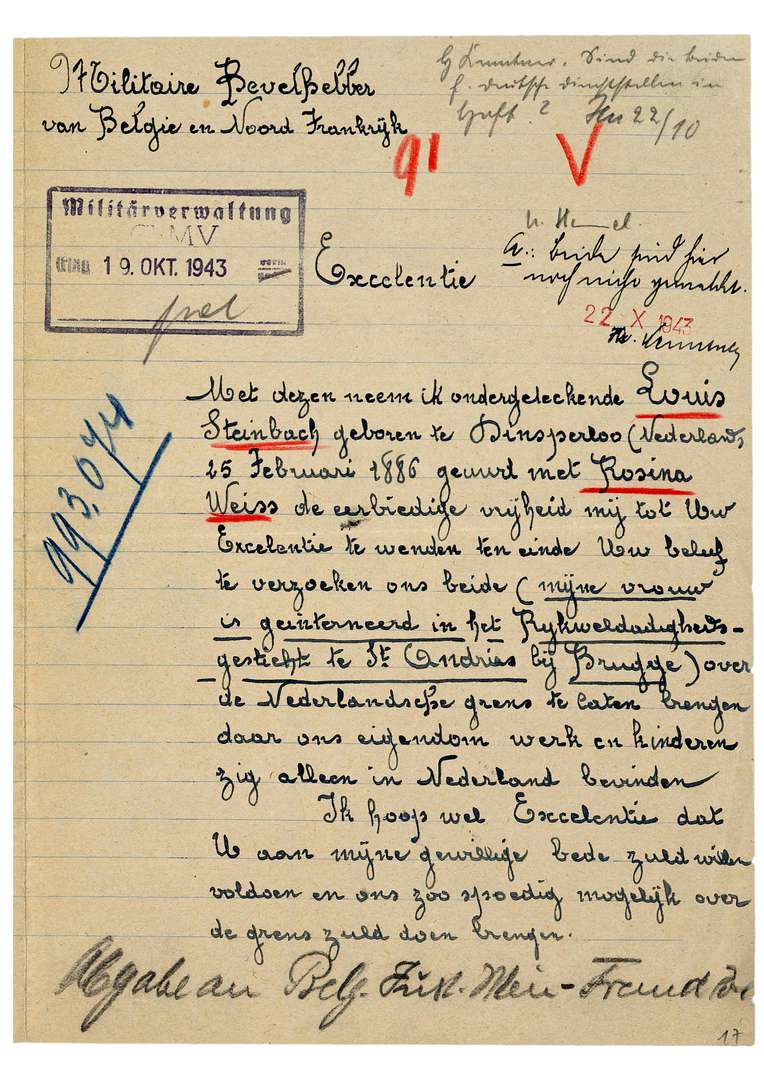 Militaire Bevelhebber
van Belgie en Noord Frankrijk
Sind die beiden
f. deutsche Dienststellen in
Haft? 22/10
91 V
Militärverwaltung
Eing. 19. OKT. 1943 vorm.
Excelentie
a.: beide sind hier
noch nicht gemeldet.
22 X 1943
993,074
Met dezen neem ik ondergeteekende Louis
Steinbach geboren te Dinsperloo (Nederland)
25 Februari 1886 gevurd met Rosina
Weiss de eerbiedige vrijheid mij tot Uw
Excelentie te wenden ten einde Uw beleef
te verzoeken ons beide (mijne vrouw
is geïnterneerd in het Rijkweldadigheids-
gesticht te St Andries bij Brugge) over
de Nederlandsche grens te laten brengen
daar ons eigendom werk en kinderen
zig alleen in Nederland bevinden
Ik hoop wel Excelentie dat
U aan mijne gewillige bede zuld willen
voldoen en ons zoo spoedig mogelijk over
de grens zuld doen brengen.
Abgabe an Belg. Just. Min-Fremd
17